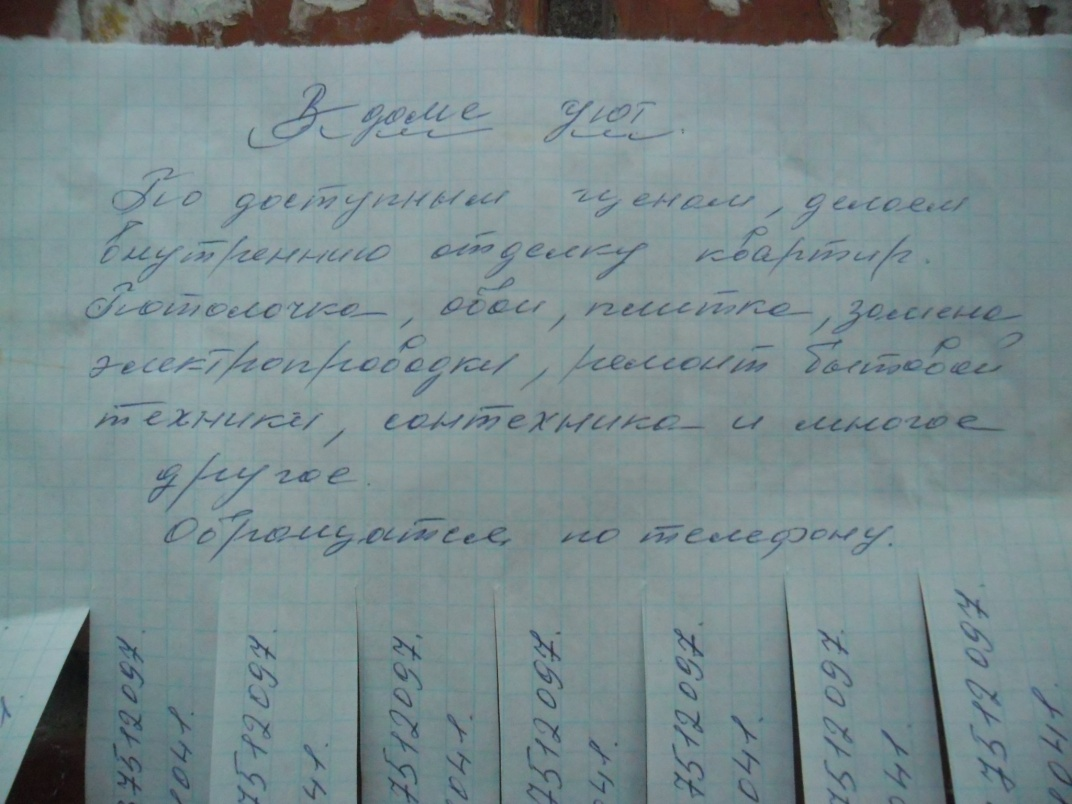 В доме уют.
По доступным ценам, делаем
внутреннию отделку квартир.
Потолочка, обои, плитка, замена
электропроводки, ремонт бытовой
техники, сантехника и многое
другое.
Обращатся, по телефону.
87512097.
1041.
7512097
41.
7512097.
041.
7512097.
041.
7512097.
041.
7512097
041.
7512097.
041.